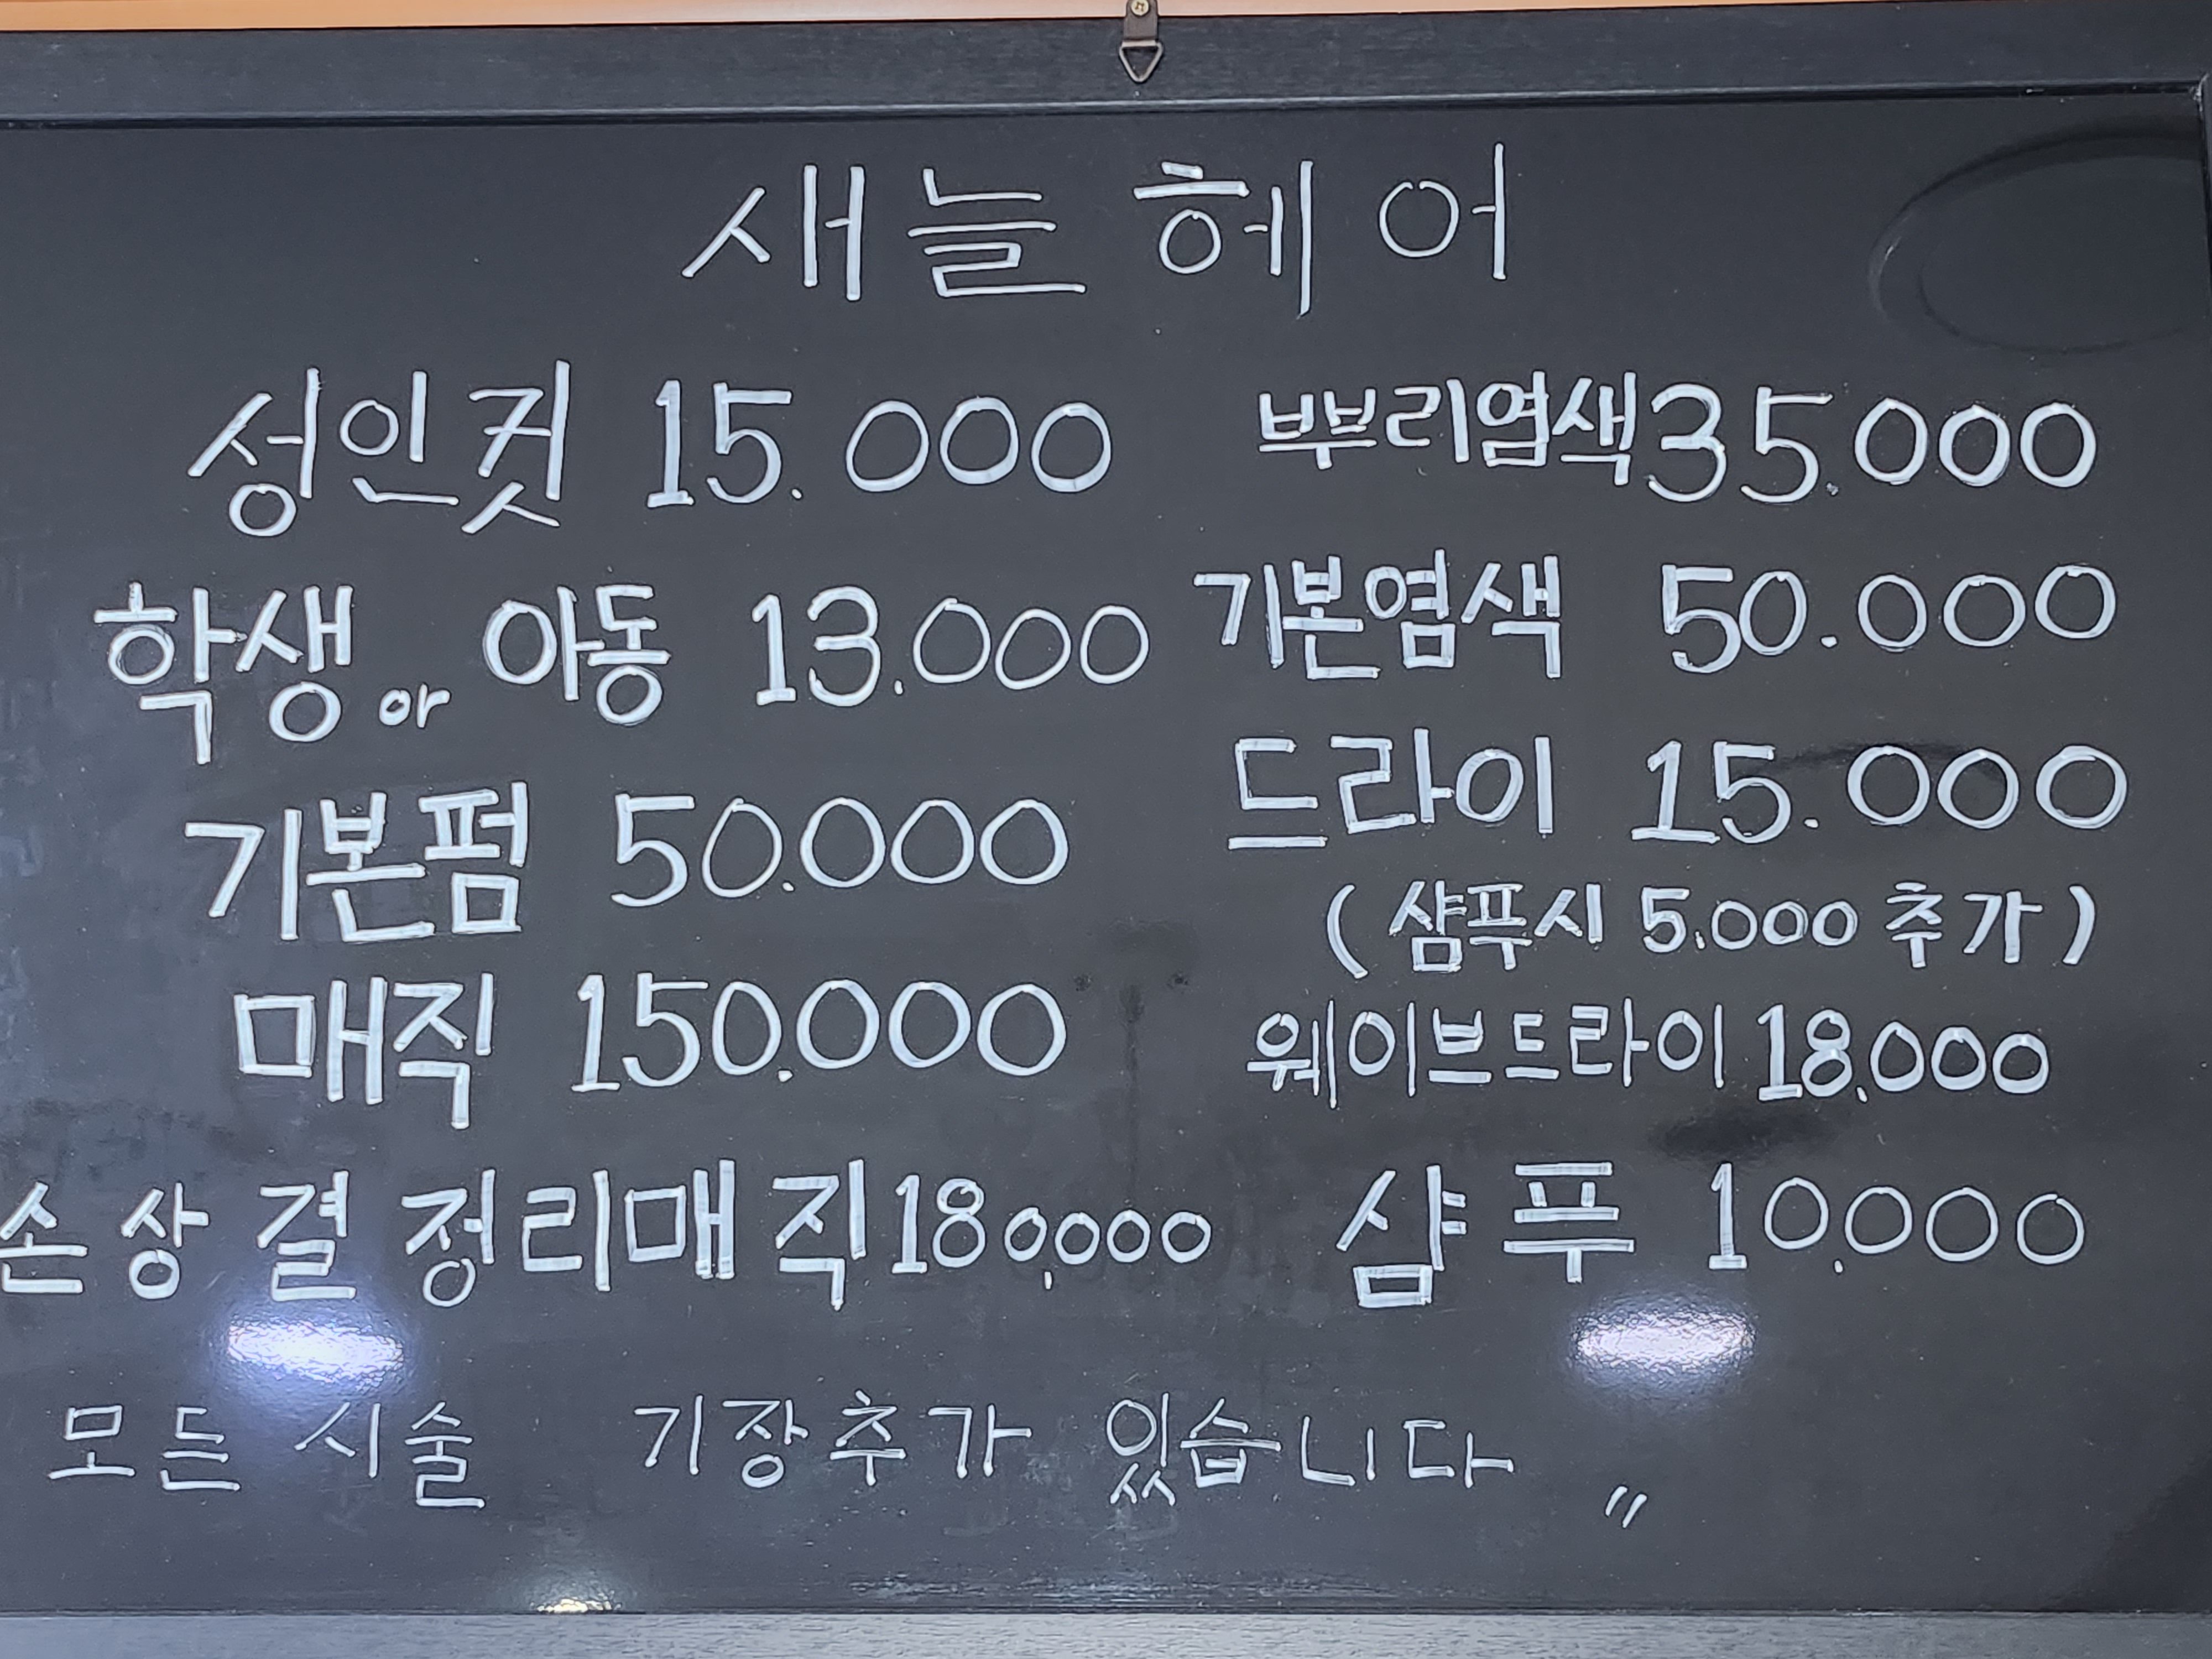 새늘헤어
성인컷 15.000
학생 or 아동 13.000
기본펌 50.000
매직 150.000
손상결정리매직 180,000
뿌리염색 35.000
기본염색 50.000
드라이 15.000
(샴푸시 5.000 추가)
웨이브드라이 18.000
샴푸 10.000
모든 시술 기장추가 있습니다 〃